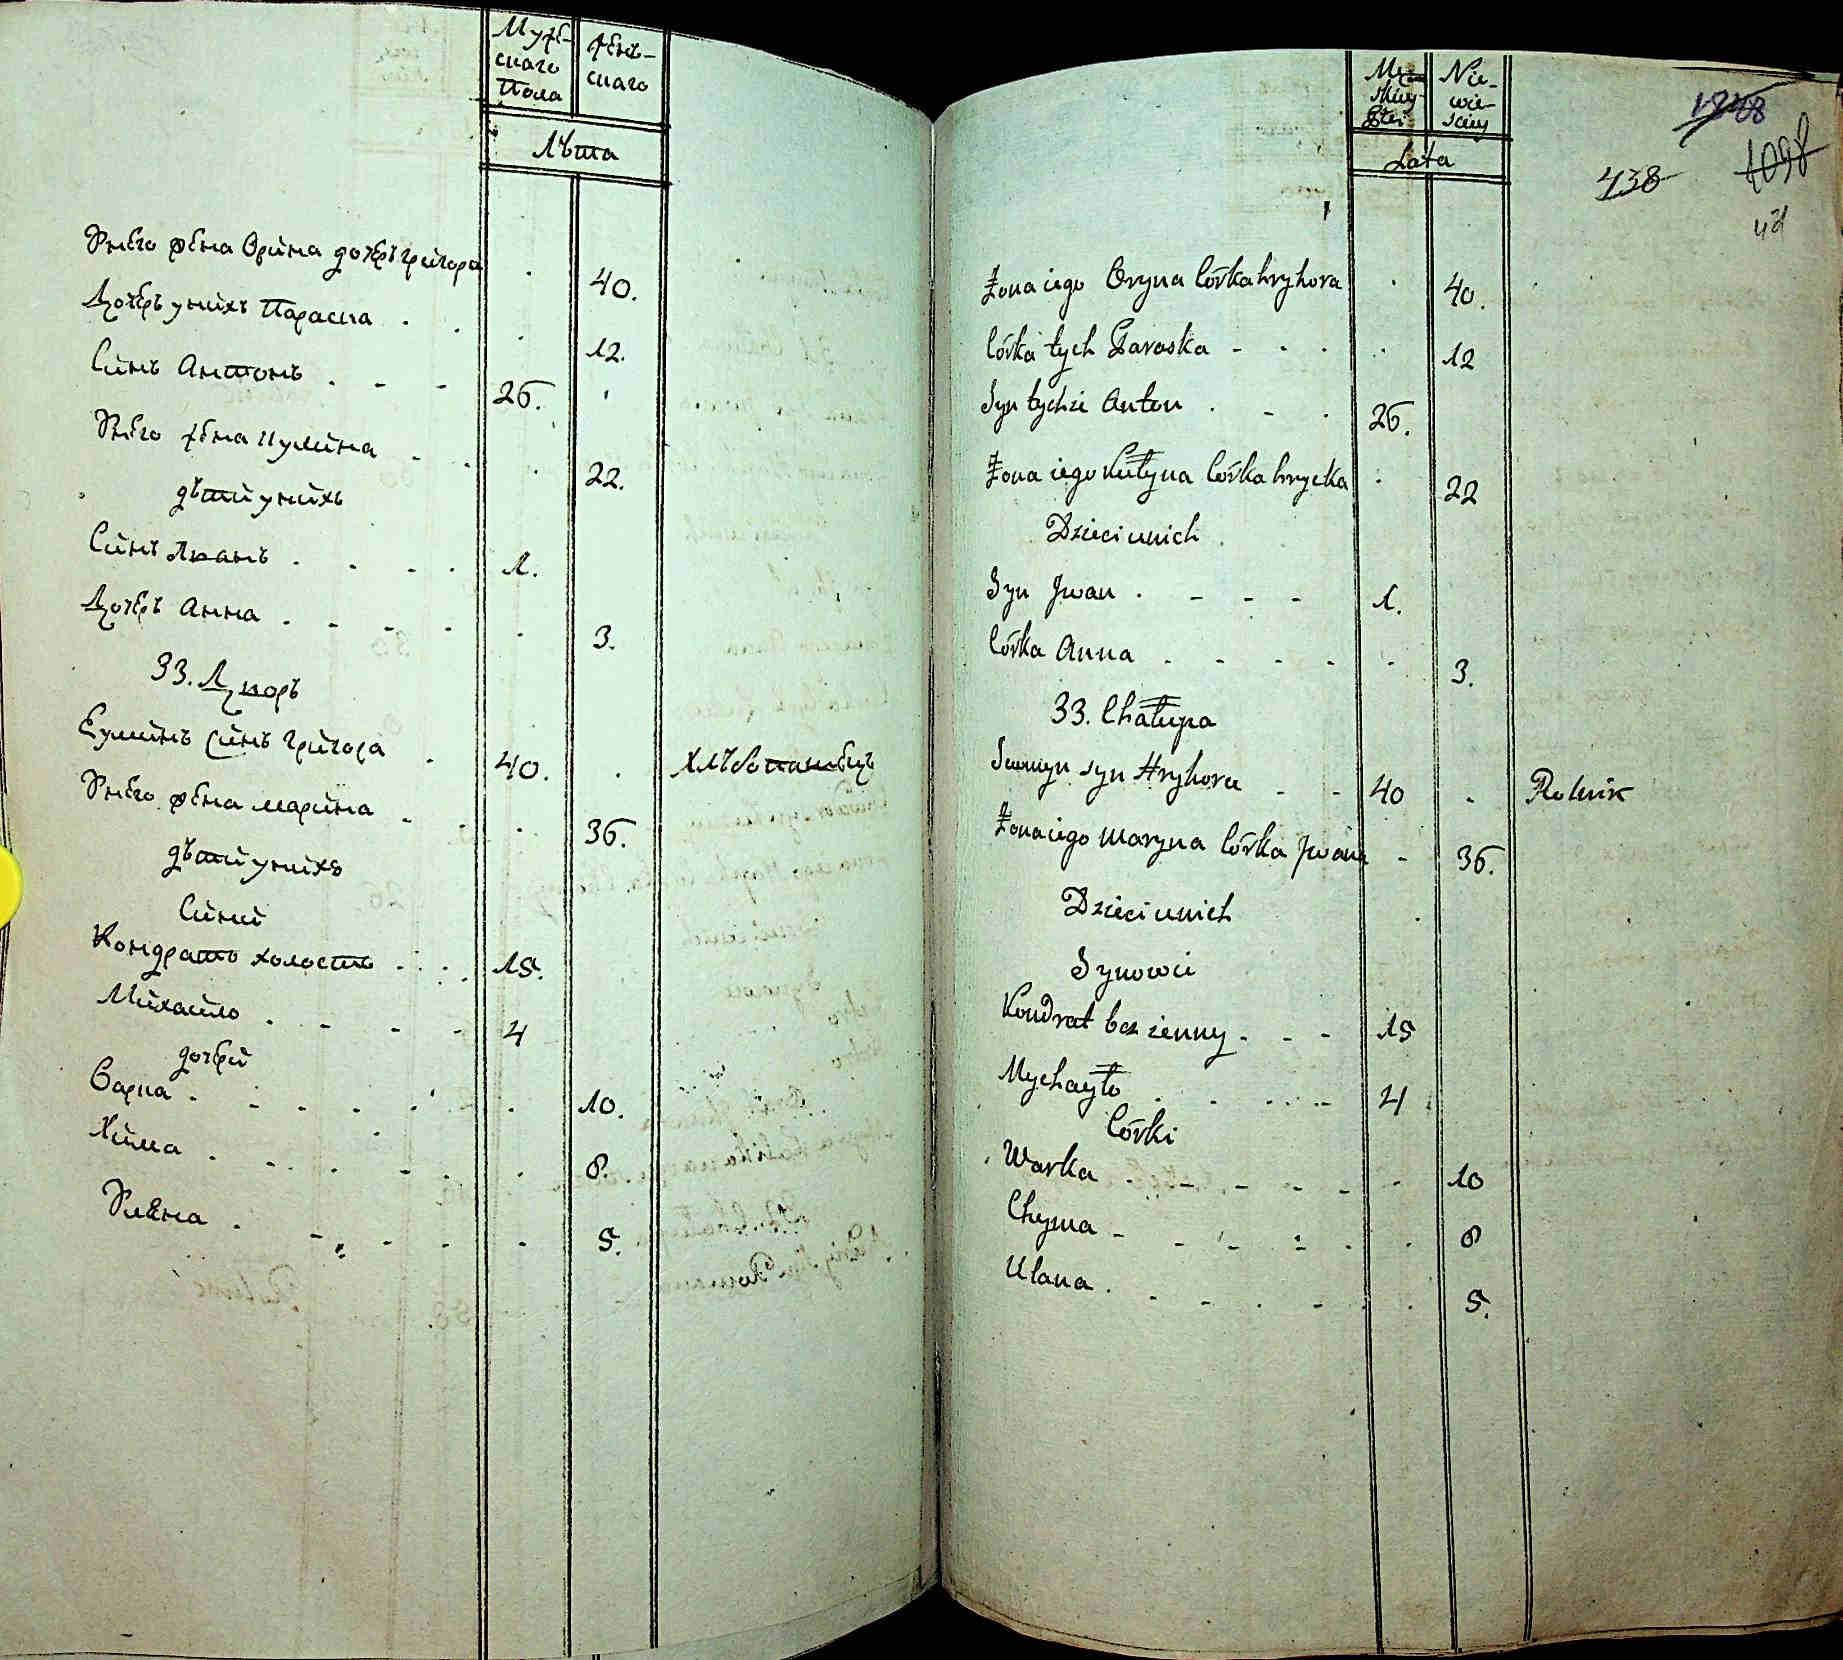 Муже-
скаго
Пола
Жен-
скаго
Лѣта
У него жена Орина дочерь григора . 40.
Дочерь у нихъ Параска . . . 12.
Синъ Антонъ . - - 26.
У него жена Кулина . . . 22.
дѣти у нихъ
Синъ Иванъ . . . . 1.
Дочерь Анна . - - - . 3.
33. Дворъ
Еуминъ синъ григора . 40. . Хлѣбопашецъ
У него жена марина . . . 36.
дѣти у нихъ
Сини
Кондратъ холостъ . . . 15.
Михайло . - - - 4
дочери
Варка . - - - . . 10.
Хима . - . . - . 8.
Улена . - - - - 5.
Mę-
skiey
Płci
Nie-
wie-
sciey
Lata
1848
438
1098
42
Żona iego Oryna Córka hryhora . 40.
Córka tych Paraska - . . . 12
Syn tychże Anton . - . 26.
Żona iego Kulyna Córka hrycka . 22
Dzieci unich
Syn Jwan . - - - 1.
Córka Anna . - - - . 3.
33. Chałupa
syn Hryhora - - 40 . Rolnik
Żona iego Maryna Córka Jwana - 36.
Dzieci unich
Synowie
Kondrat bez żenny . - - 15
Mychayło . . . - 4
Córki
Warka . - - - - - 10
Chyma - - - - . . 8
Ulana . - - . - . . 5.